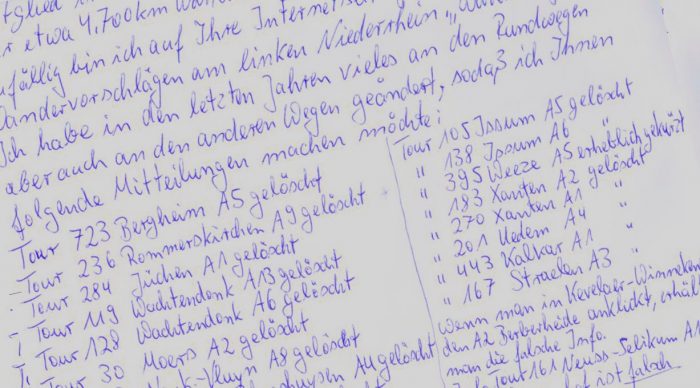 tglied
r etwa 4.700km Wan
ufällig bin ich auf Ihre Internetsei
Wandervorschlägen am linken Niederrhein „Wan
Ich habe in den letzten Jahren vieles an den Rundwegen
aber auch an den anderen Wegen geändert, sodaß ich Ihnen
folgende Mitteilungen machen möchte:
Tour 723 Bergheim A5 gelöscht
- Tour 236 Rommerskirchen A9 gelöscht
Tour 284 Jüchen A1 gelöscht
Tour 119 Wachtendonk A13 gelöscht
Tour 128 Wachtendonk A6 gelöscht
Tour 30 Moers A2 gelöscht
-Vluyn A8 gelöscht
huysen A4 gelöscht
Tour 105 Issum A5 gelöscht
" 138 Issum A6 "
" 395 Weeze A5 erheblich gekürzt
" 183 Xanten A2 gelöscht
" 270 Xanten A1 "
" 201 Uedem A4 "
" 443 Kalkar A1 "
" 167 Straelen A3 "
Wenn man in Kevelaer-Winneken
den A2 Berberheide anklickt, erhäl
man die falsche Info.
Tour 161 Neuss-Selikum A1
ist falsch